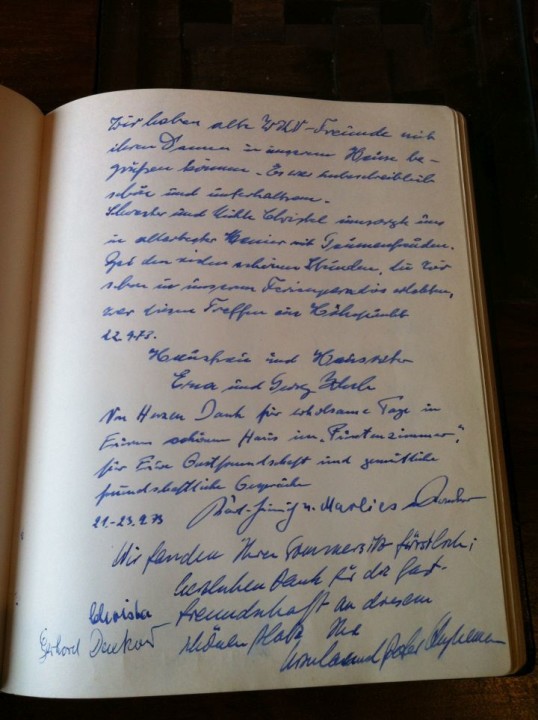 Wir haben alte WKV-Freunde mit
ihren Damen in unserem Hause be-
grüßen können. Es war unbeschreiblich
schön und unterhaltsam.
Schwester und Christel umsorgte uns
in allerbester Manier mit Gaumenfreuden.
den vielen schönen Stunden, die wir
schon in unserem Ferienparadies erlebten,
war dieses Treffen ein Höhepunkt
22.4.73.
Hausfrau und Hausvater
Erna und Georg
Von Herzen Dank für erholsame Tage in
Eurem schönen Haus im „Fürstenzimmer“,
für Eure Gastfreundschaft und gemütliche
freundschaftliche Gespräche
21.-23.9.73 u. Marlies
Wir fanden Ihren Sommersitz fürstlich;
herzlichen Dank für die Gast-
freundschaft an diesem
schönen Platz. Ihre
Ursula und Peter
Christa
Gerhard